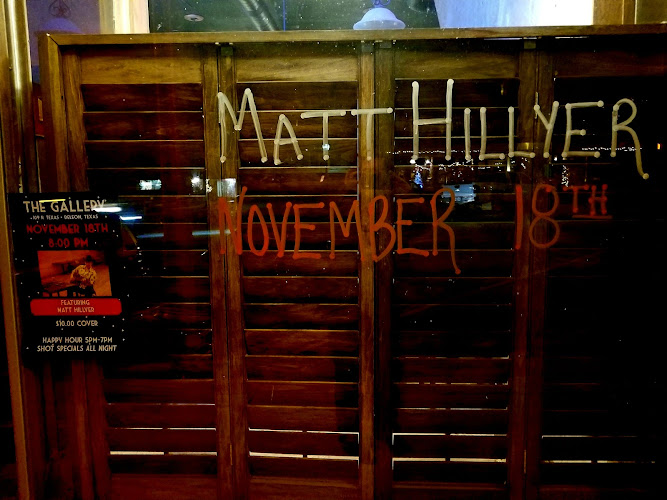 MATT HILLYER
NOVEMBER 18TH
THE GALLERY
NOVEMBER 18TH
8:00 PM
FEATURING
MATT HILLYER
$10.00 COVER
HAPPY HOUR 5PM-7PM
SHOT SPECIALS ALL NIGHT